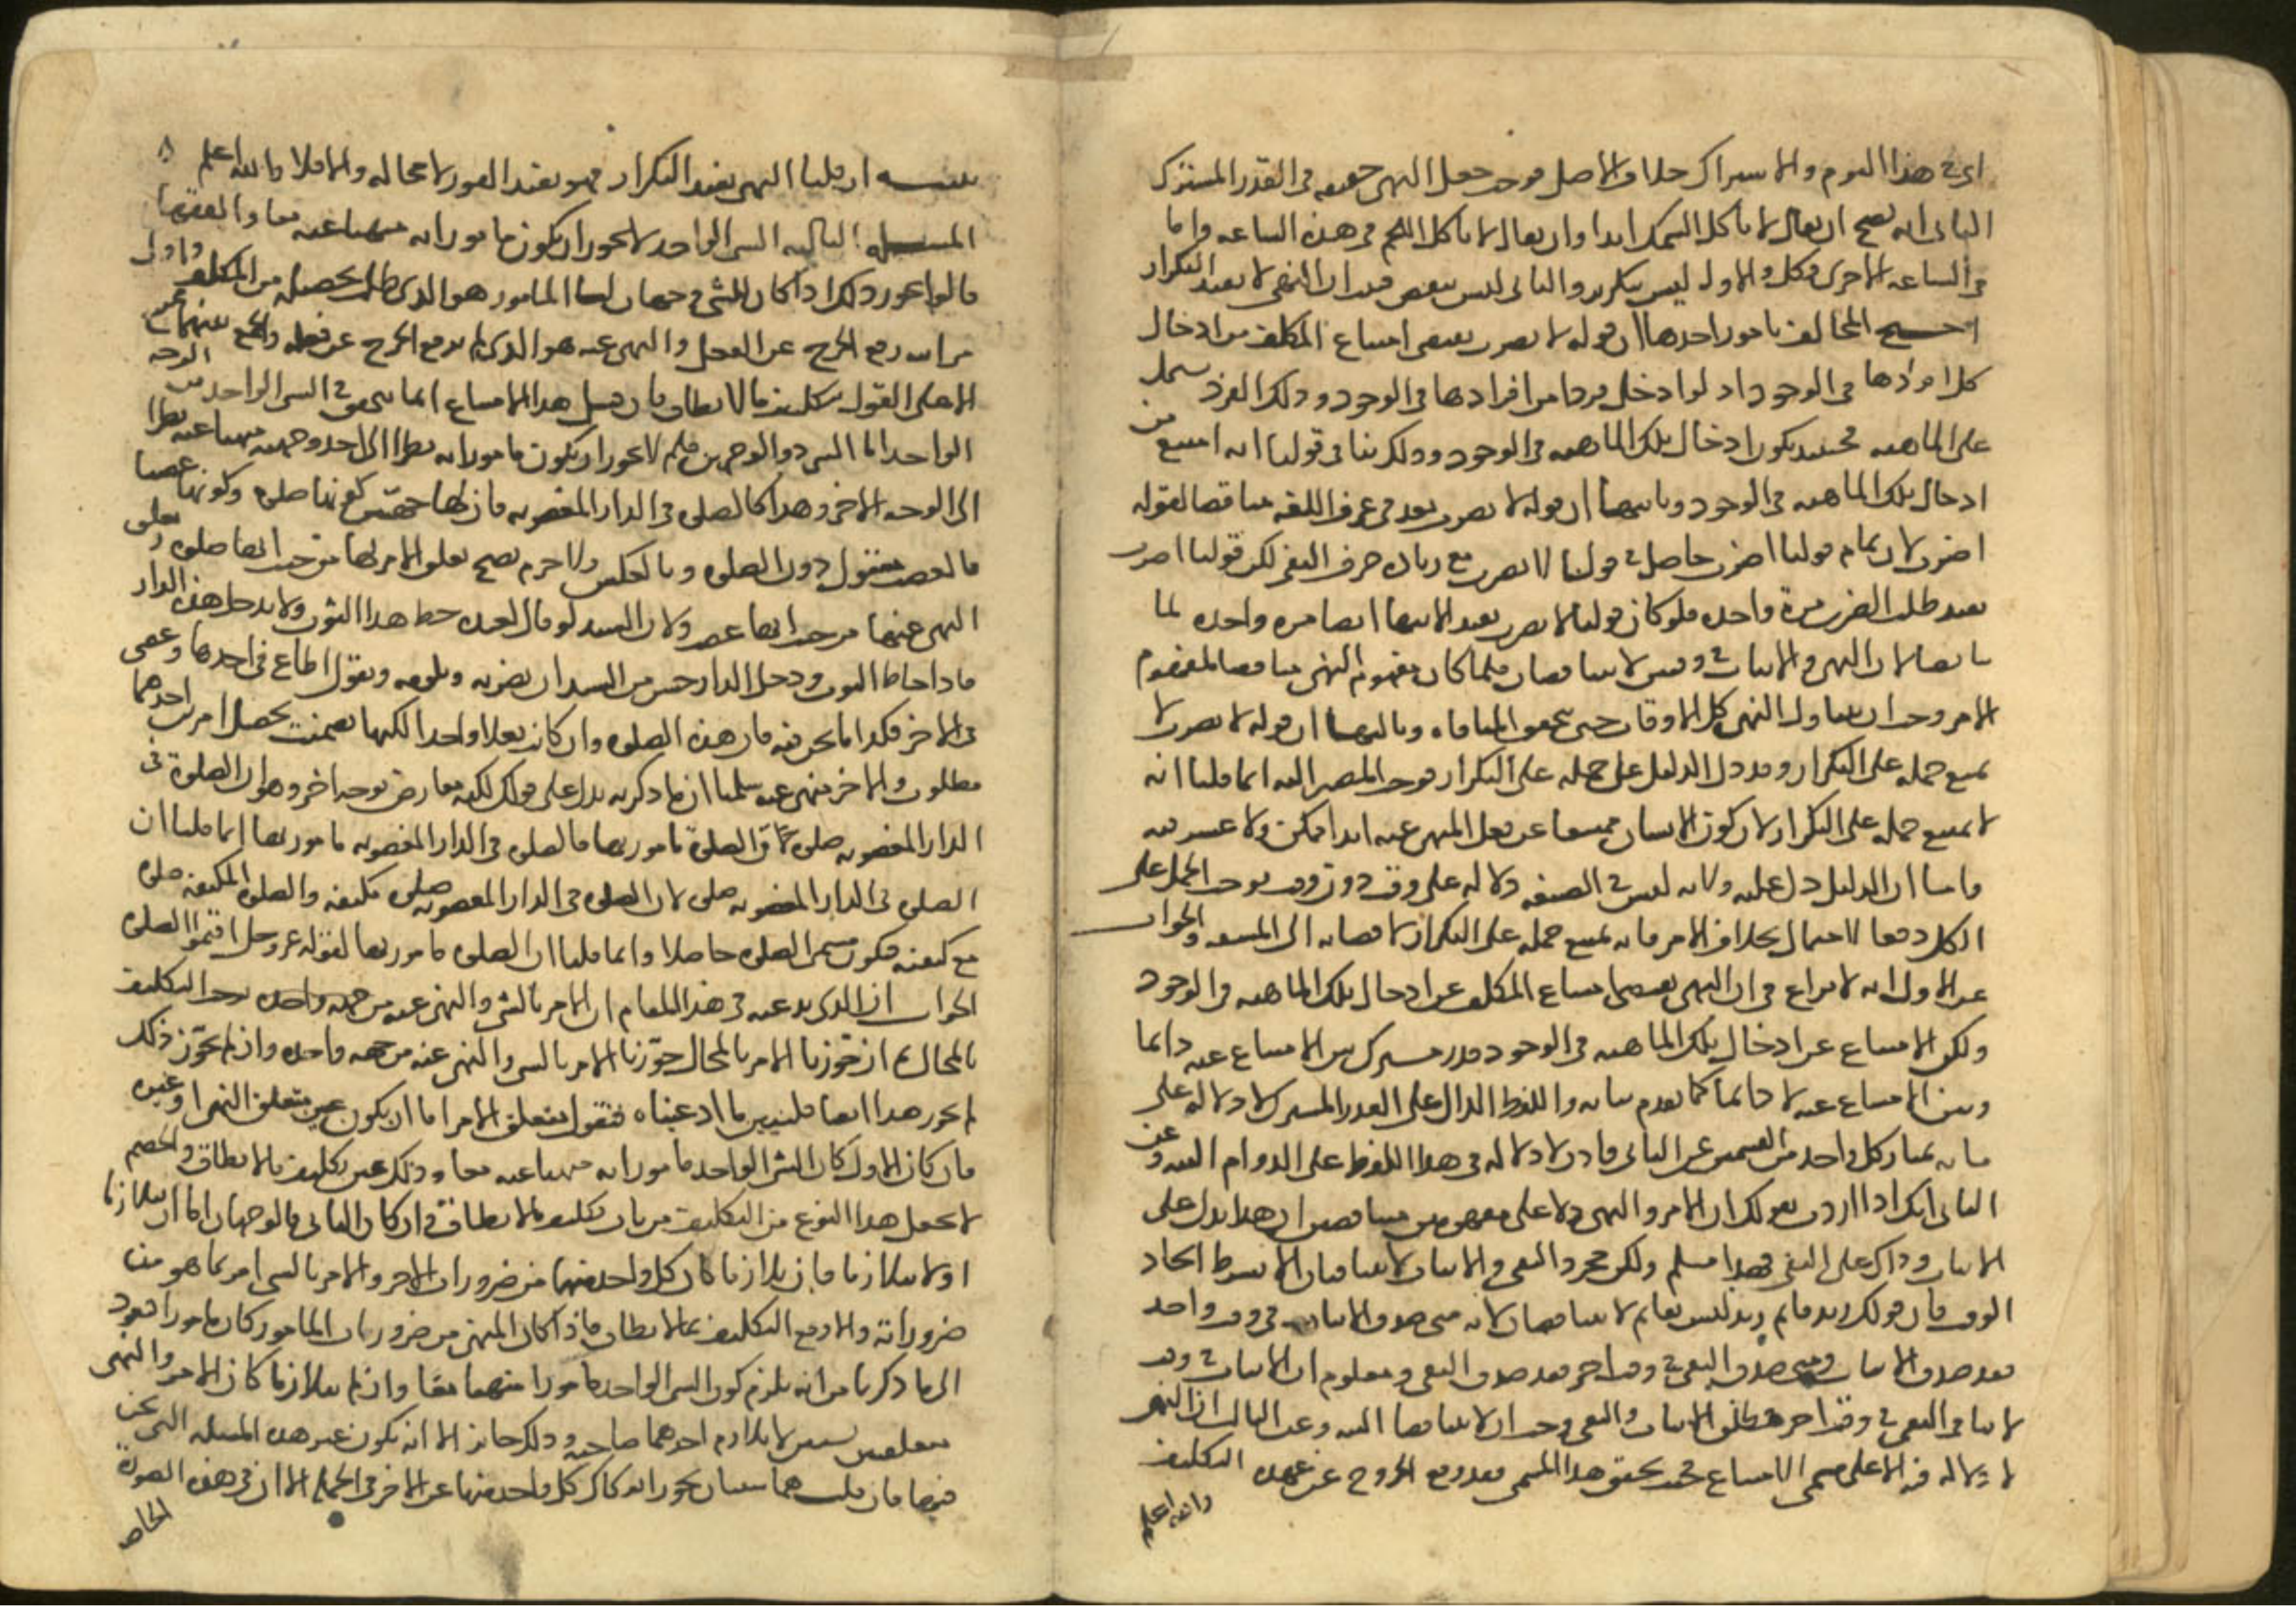 اى فى هذا اليوم والاشتراك خلاف الاصل فوجب جعل النهى حقيقة فى القدر المشترك
الثانى انه يصح ان يقال لا تاكل السمك ابدا وان يقال لا تاكل اللحم فى هذه الساعه واما
فى الساعه الاخرى فكل والاول ليس بتكرير والثانى ليس بنقض فثبت ان النهى لا يفيد التكرار
احتج المخالف بامور احدها ان قوله لا تضرب يقتضى امتناع المكلف من ادخال
كل افرادها فى الوجود اذ لو ادخل فردا من افرادها فى الوجود وذلك الفرد يشتمل
على الماهيه فحينئذ يكون ادخال تلك الماهيه فى الوجود وذلك ينافى قولنا انه امتنع من
ادخال تلك الماهيه فى الوجود وثانيها ان قوله لا تضرب يعد فى عرف اللغه مناقضا لقوله
اضرب لان تمام قولنا اضرب حاصل فى قولنا لا تضرب مع زياده حرف النفى لكن قولنا اضرب
يفيد طلب الضرب مرة واحده فلو كان قولنا لا تضرب يفيد الانتها ايضا مره واحده لما
تناقضا لان النهى والاثبات فى وقتين لا يتناقضان فلما كان مفهوم النهى مناقضا لمفهوم
الامر وجب ان يتناول النهى كل الاوقات حتى تتحقق المنافاه وثالثها ان قوله لا تضرب لا
يمتنع حمله على التكرار وقد دل الدليل على حمله على التكرار فوجب المصير اليه انما قلنا انه
لا يمتنع حمله على التكرار لان كون الانسان ممتنعا عن فعل المنهى عنه ابدا ممكن ولا عسر فيه
واما ان الدليل دل عليه ولانه ليس فى الصيغه دلاله على وقت دون وقت فوجب الحمل على
الكل دفعا للاحتمال بخلاف الامر فانه يمتنع حمله على التكرار لافضائه الى المشقه والجواب
عن الاول انه لا نزاع فى ان النهى يقتضى امتناع المكلف عن ادخال تلك الماهيه فى الوجود
ولكن الامتناع عن ادخال تلك الماهيه فى الوجود قدر مشترك بين الامتناع عنه دايما
وبين الامتناع عنه لا دائما كما تقدم بيانه واللفظ الدال على القدر المشترك لا دلاله له على
ما به يمتاز كل واحد من القسمين عن الثانى فاذن لا دلاله فى هذا اللفظ على الدوام البته وعن
الثانى انك اذا اردت بقولك ان الامر والنهى دلا على مفهومين متناقضين ان هذا يدل على
الاثبات وذاك على النفى فهذا مسلم ولكن مجرد النفى والاثبات لا يتنافيان الا بشرط اتحاد
الوقت فان قولك زيد قايم زيد ليس بقايم لا يتناقضان لانه متى صدق الاثبات فى وقت واحد
فقد صدق الاثبات ومتى صدق النفى فى وقت اخر فقد صدق النفى ومعلوم ان الاثبات فى وقت
لا ينافى النفى فى وقت اخر فمطلق الاثبات والنفى وجب ان لا يتناقضا البته وعن الثالث ان النهى
لا دلاله فيه الا على مسمى الامتناع فحيث تحقق هذا المسمى فقد وقع الخروج عن عهده التكليف
والله اعلم
تنبيه ان قلنا النهى يفيد التكرار فهو يفيد الفور لا محاله والا فلا والله اعلم ٨
المسئله الثالثه الشى الواحد لا يجوز ان يكون مامورا به منهيا عنه معا والفقها
قالوا يجوز ذلك اذا كان للشى وجهان لنا المامور هو الذى طلب تحصيله من المكلف واول
مراتبه رفع الحرج عن الفعل والمنهى عنه هو الذى لم يرفع الحرج عن فعله والجمع بينهما ممتنع
الا على القول بتكليف ما لا يطاق فان قيل هذا الامتناع انما يتحقق فى الشى الواحد من الوجه
الواحد اما الشى ذو الوجهين فلم لا يجوز ان يكون مامورا به نظرا الى احد وجهيه منهيا عنه نظرا
الى الوجه الاخر وهذا كالصلوه فى الدار المغصوبه فان لها جهتين كونها صلوه وكونها غصبا
والغصب معقول دون الصلوه وبالعكس ولا جرم يصح تعلق الامر بها من حيث انها صلوه وتعلق
النهى عنها من حيث انها غصب ولان السيد لو قال لعبده خط هذا الثوب ولا تدخل هذه الدار
فاذا خاط الثوب ودخل الدار حسن من السيد ان يضربه ويلومه ويقول اطاع فى احدهما وعصى
فى الاخر فكذا ما نحن فيه فان هذه الصلوه وان كانت فعلا واحدا لكنها تضمنت تحصيل امرين احدهما
مطلوب والاخر منهى عنه سلمنا ان ما ذكرته يدل على قولك لكنه معارض بوجه اخر وهو ان الصلوة فى
الدار المغصوبه صلوة والصلوة مامور بها فالصلوه فى الدار المغصوبه مامور بها انما قلنا ان
الصلوه فى الدار المغصوبه صلوه لان الصلوه فى الدار المغصوبه صلوه مكيفه والصلوه المكيفه صلوه
مع كيفيه فيكون مسمى الصلوه حاصلا وانما قلنا ان الصلوه مامور بها لقوله عز وجل اقيموا الصلوه
الجواب ان الذى ندعيه فى هذا المقام ان الامر بالشى والنهى عنه من جهه واحده يوجب التكليف
بالمحال ثم ان جوزنا الامر بالمحال جوزنا الامر بالشى والنهى عنه من جهه واحده وان لم نجوز ذلك
لم نجوز هذا ايضا فلنبين ما ادعيناه فنقول متعلق الامر اما ان يكون عين متعلق النهى او غيره
فان كان الاول كان الشى الواحد مامورا به منهيا عنه معا وذلك عين تكليف ما لا يطاق والخصم
لا يجعل هذا النوع من التكليف من باب تكليف ما لا يطاق وان كان الثانى فالوجهان اما ان يتلازما
او لا يتلازما فان تلازما كان كل واحد منهما من ضرورات الاخر والامر بالشى امر بما هو من
ضروراته والا وقع التكليف بما لا يطاق فاذا كان المنهى من ضروريات المامور كان مامورا فيعود
الى ما ذكرنا من انه يلزم كون الشى الواحد مامورا منهيا معا وان لم يتلازما كان الامر والنهى
متعلقين بشيين لا يلازم احدهما صاحبه وذلك جائز الا انه يكون غير هذه المسئله التى نحن
فيها فان قلت هما شيئان يجوز انفكاك كل واحد منهما عن الاخر فى الجمله الا ان فى هذه الصورة
الخاصه